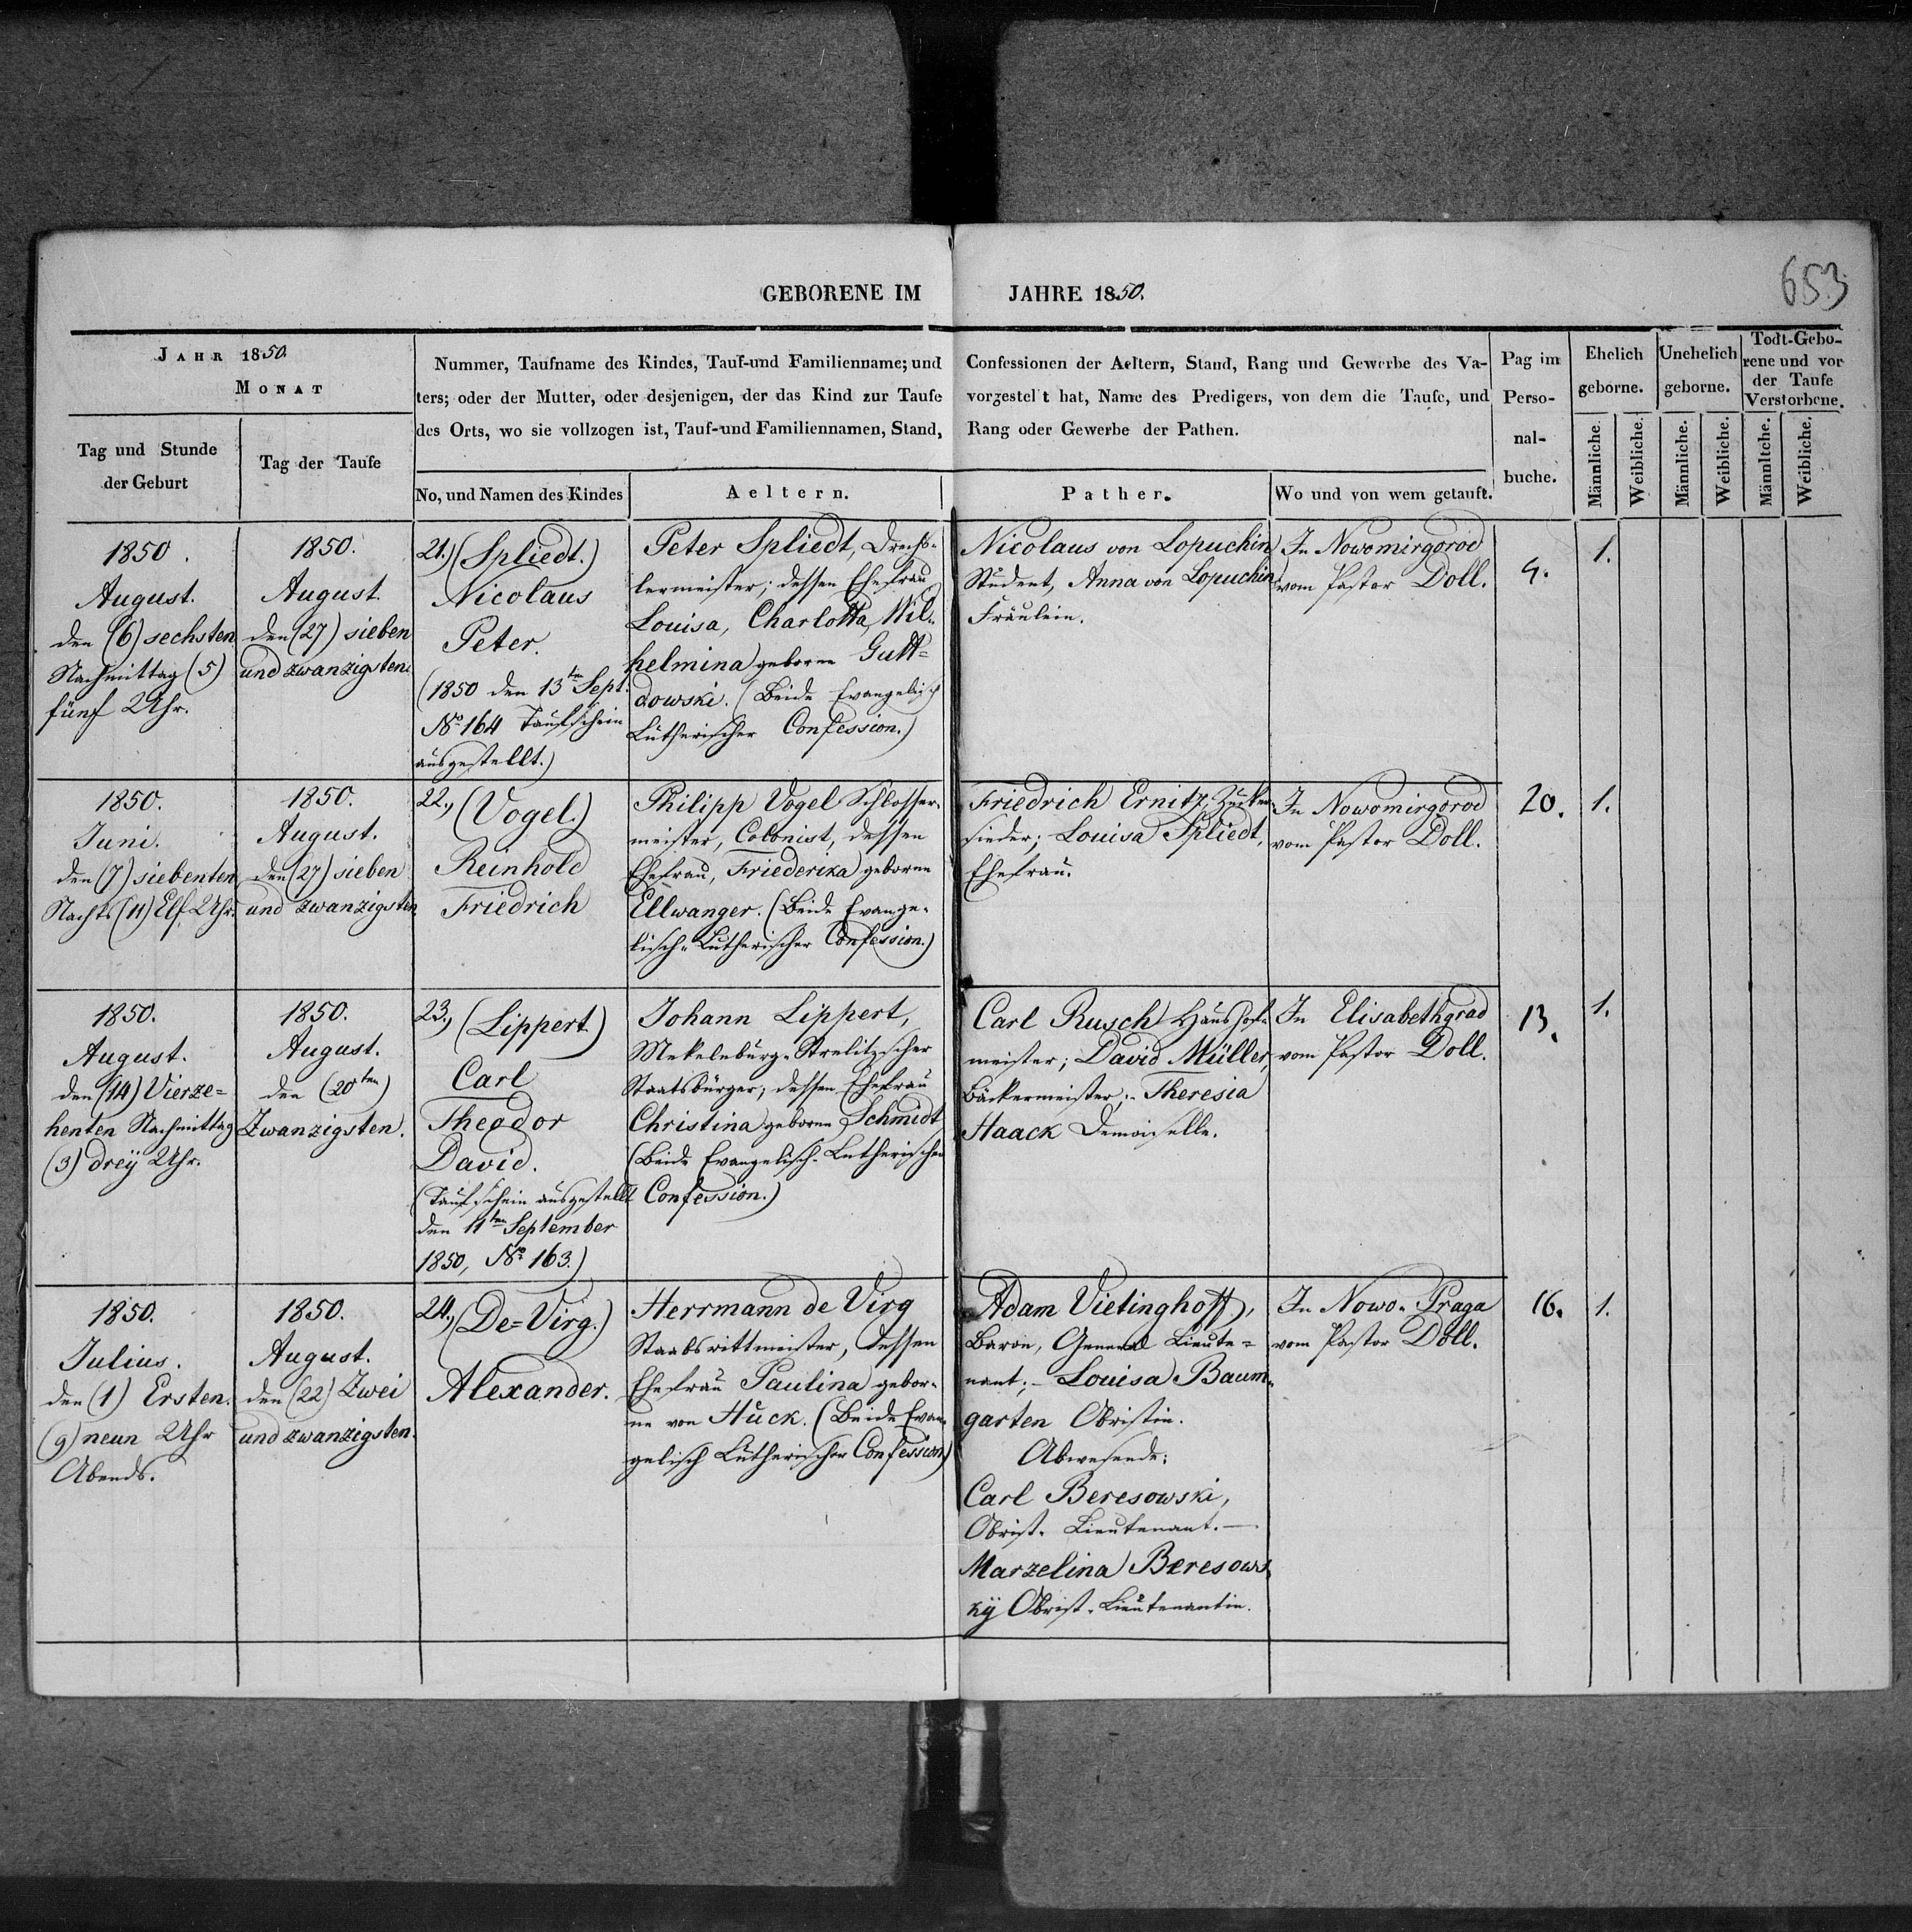 GEBORENE IM JAHRE 1850.
653
JAHR 1850.
MONAT
Tag und Stunde
der Geburt
Tag der Taufe
Nummer, Taufname des Kindes, Tauf-und Familienname; und
ters; oder der Mutter, oder desjenigen, der das Kind zur Taufe
des Orts, wo sie vollzogen ist, Tauf-und Familiennamen, Stand,
No, und Namen des Kindes
Aeltern.
Confessionen der Aeltern, Stand, Rang und Gewerbe des Va-
vorgestel't hat, Name des Predigers, von dem die Taufe, und
Rang oder Gewerbe der Pathen.
Pather.
Wo und von wem getauft.
Pag im
Perso-
nal-
buche.
Ehelich
geborne.
Unehelich
geborne.
Todt-Gebo-
rene und vor
der Taufe
Verstorbene.
Männliche.
Weibliche.
Männliche.
Weibliche.
Männltche.
Weibliche.
1850.
August.
den (6) sechsten
Nachmittag (5)
fünf Uhr.
1850.
August.
den (27) sieben
und zwanzigsten.
21.) (Spliedt.)
Nicolaus
Peter.
(1850 den 13ten Sept.
No 164 Taufschein
ausgestellt.)
Peter Spliedt, Drechs-
lermeister; dessen Ehefrau
Louisa, Charlotta, Wil-
helmina geborne Gutt=
dowski. (Beide Evangelisch
Lutherischer Confession.)
Nicolaus von Lopuchin
Student, Anna von Lopuchin
Fräulein.
In Nowomirgorod
vom Pastor Doll.
4.
1.
1850.
Juni.
den (7) siebenten
Nachts (11) Elf Uhr.
1850.
August.
den (27) sieben
und zwanzigsten
22.) (Vogel.)
Reinhold
Friedrich
Philipp Vogel Schlosser-
meister, Colonist, dessen
Ehefrau, Friederika geborne
Ellwanger. (Beide Evange-
lisch-Lutherischer Confession.)
Friedrich Ernitz, Zucker-
sieder; Louisa Spliedt,
Ehefrau.
In Nowomirgorod
vom Pastor Doll.
20.
1.
1850.
August.
den (14) Vierze=
henten Nachmittag
(3) dreÿ Uhr.
1850.
August.
den (20ten)
Zwanzigsten.
23.) (Lippert.)
Carl
Theodor
David.
(Taufschein ausgestellt
den 11ten September
1850, No 163.)
Johann Lippert,
Mekelnburg-Strelitzscher
Staatsbürger; dessen Ehefrau
Christina geborne Schmidt
(Beide Evangelisch-Lutherischer
Confession.)
Carl Rusch Haushof-
meister; David Müller,
Bäckermeister;- Theresia
Haack Demoiselle.
In Elisabethgrad
vom Pastor Doll.
13.
1.
1850.
Julius.
den (1) Ersten.
(9) neun Uhr
Abends.
1850.
August.
den (22) Zwei
und zwanzigsten.
24.) (De=Virg.)
Alexander.
Herrmann de Virg
Staabsrittmeister, dessen
Ehefrau Paulina gebor-
ne von Huck. (Beide Evan-
gelisch Lutherischer Confession)
Adam Vietinghoff,
Baron, General Lieute=
nant;- Louisa Baum-
garten Obristin.
Abwesende:
Carl Beresowski,
Obrist-Lieutenant.—
Marzelina Beresows-
kÿ Obrist-Lieutenantin.
In Nowo-Praga
vom Pastor Doll.
16.
1.